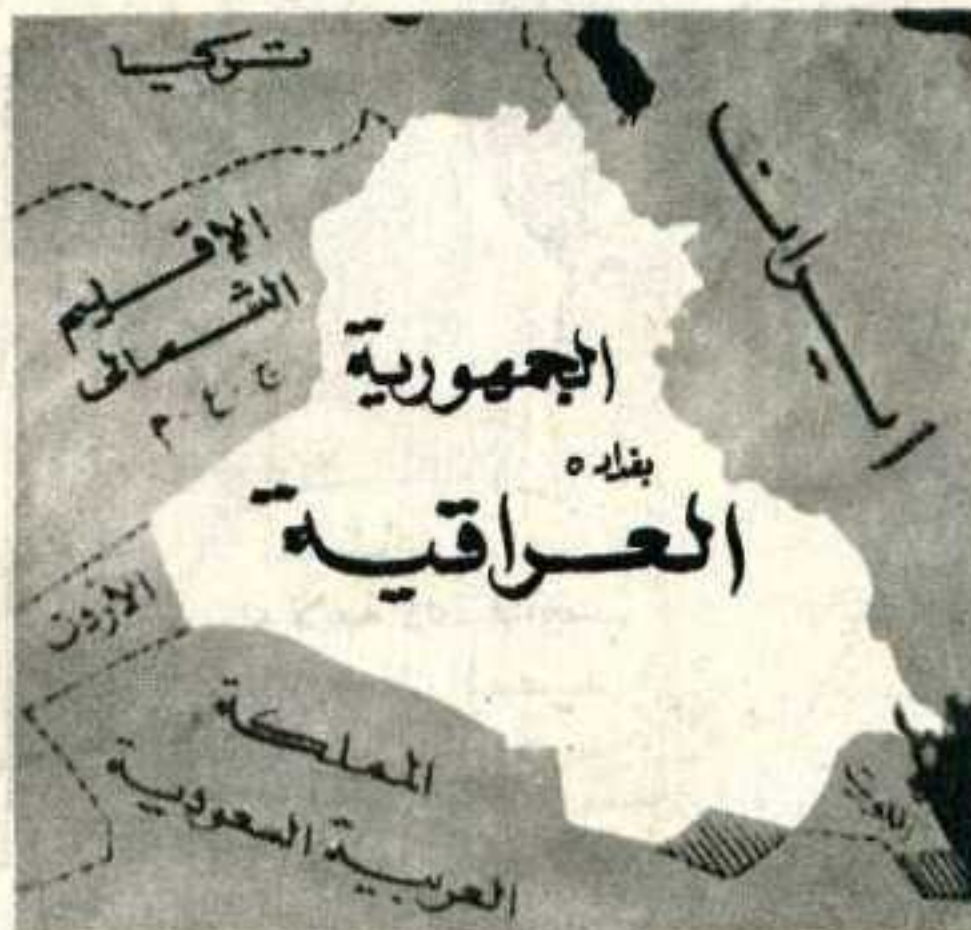 تركيا
ايران
الإقليم
الشمالى
ج.ع.م
الجمهورية
بغداد
العراقية
الأردن
المملكة
العربية السعودية
الكويت